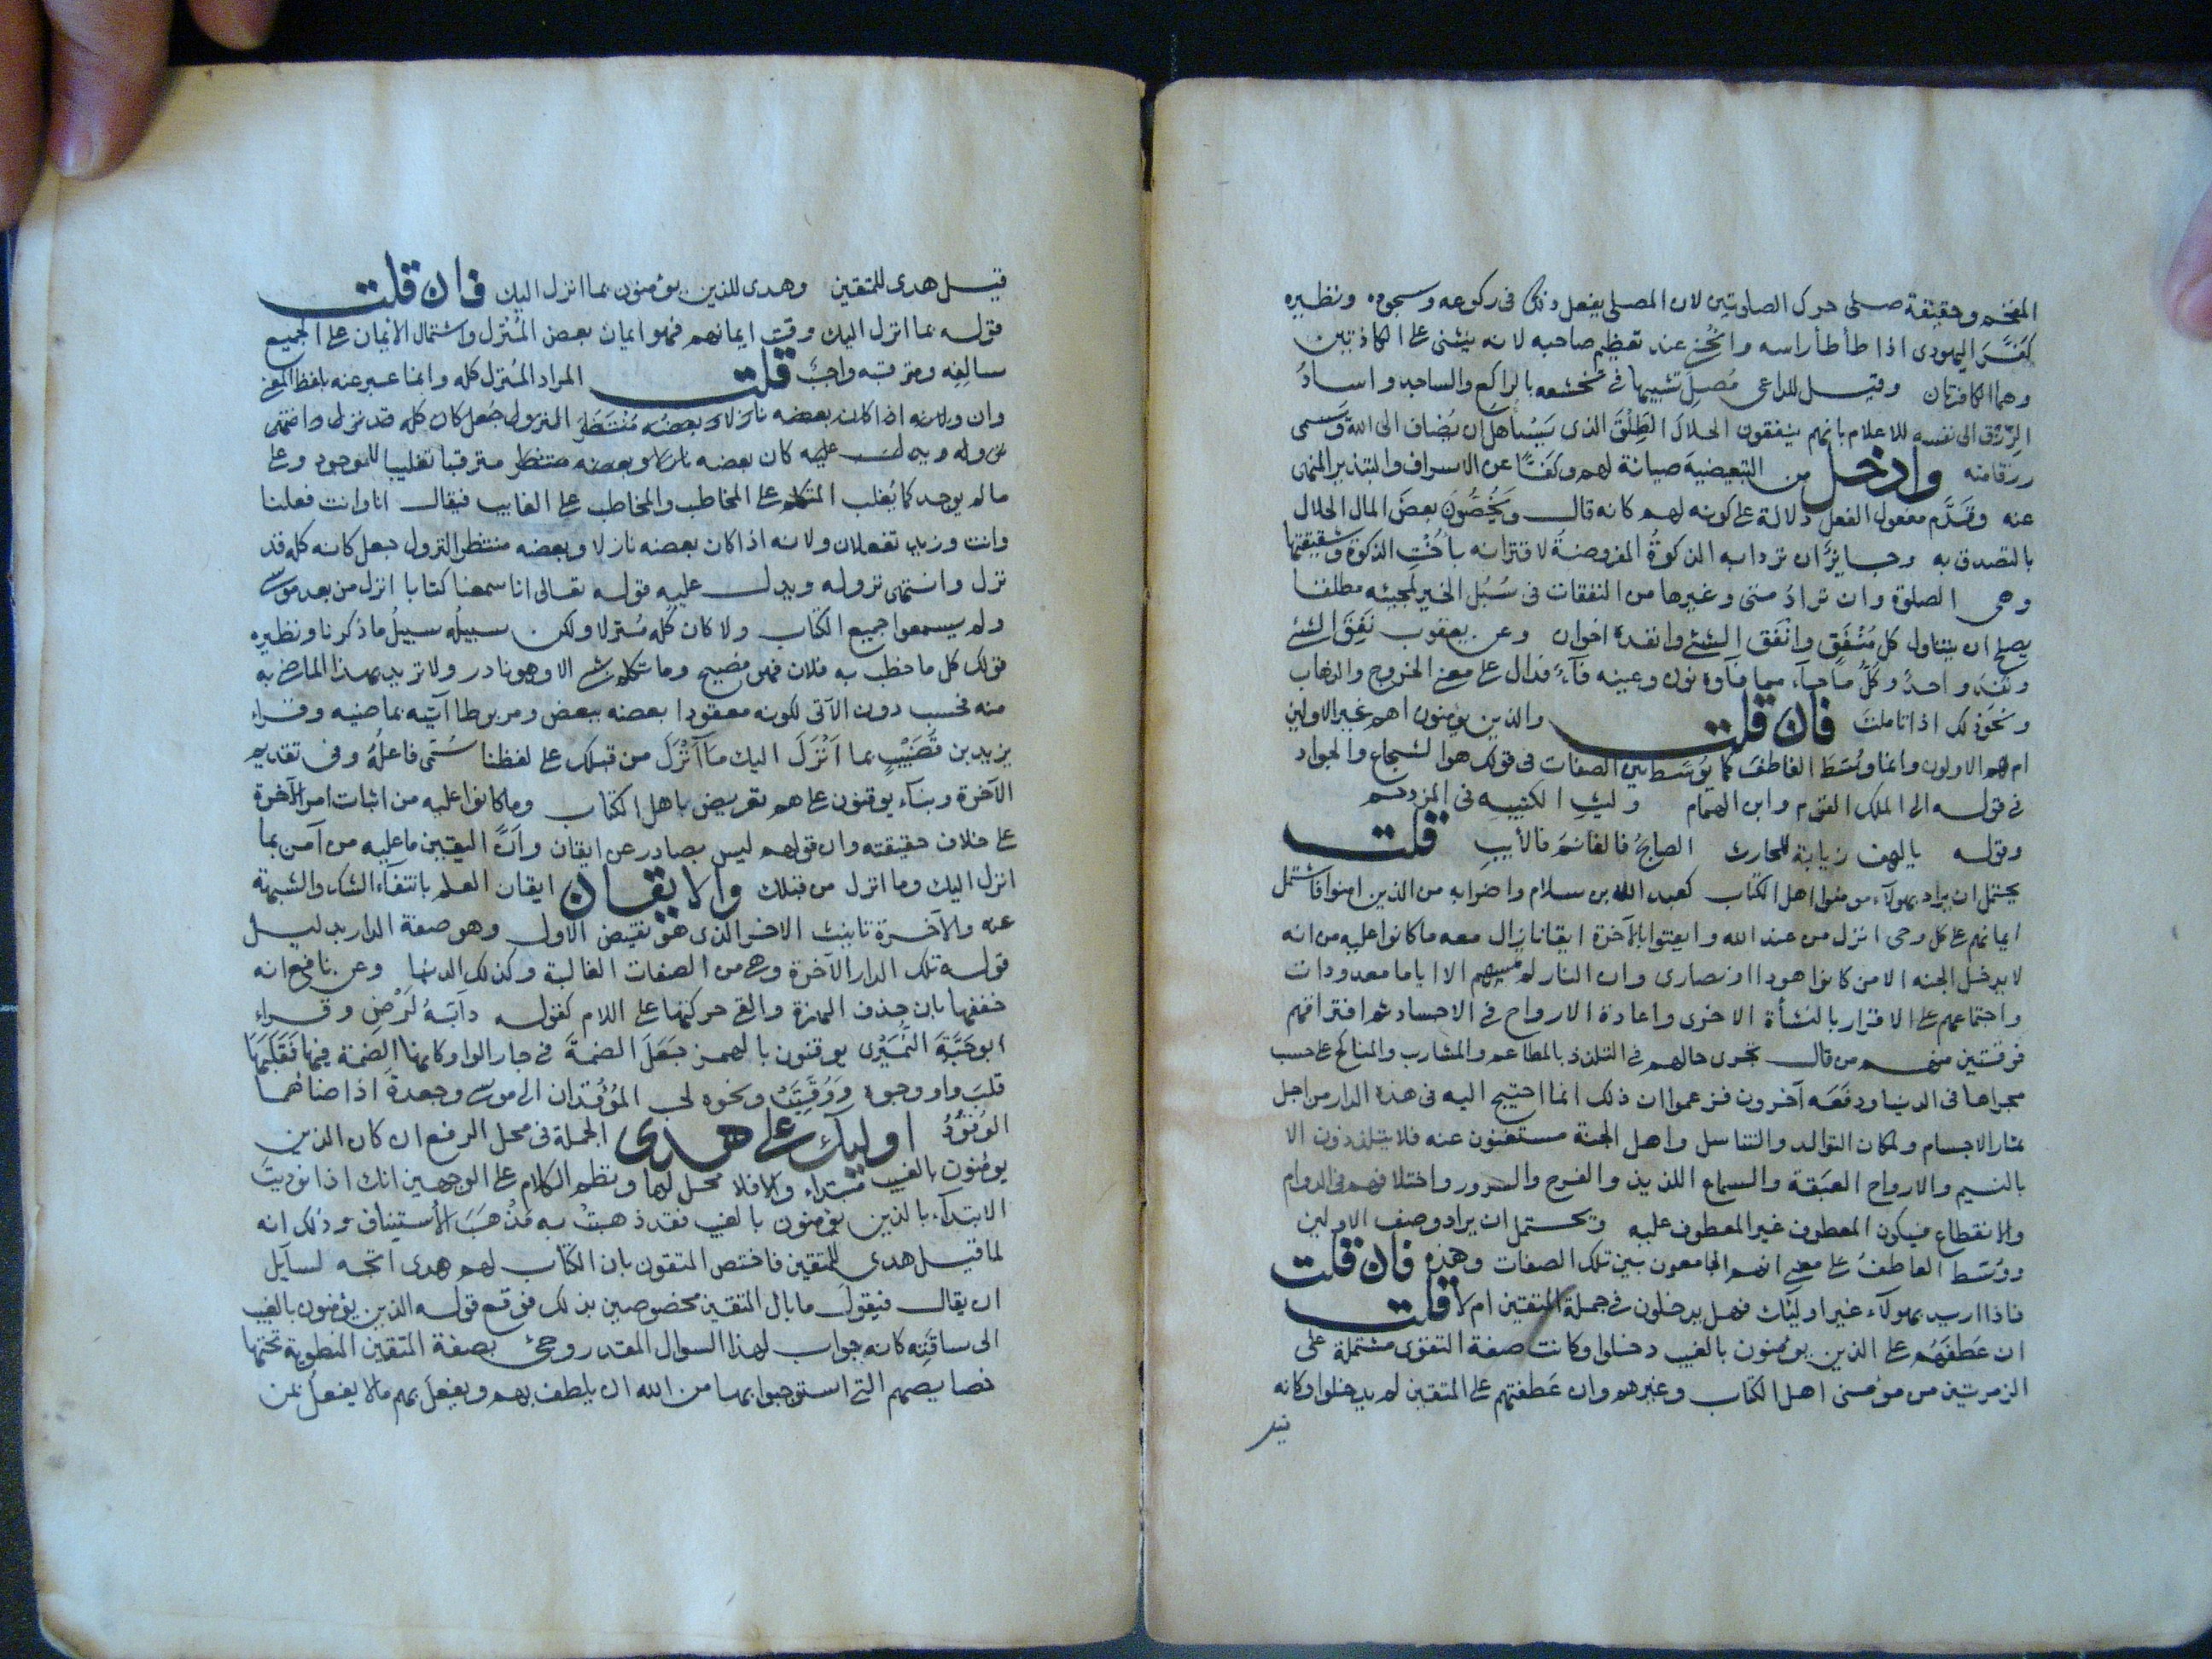 المفخم وحقيقة صلى حرك الصلوتين لان المصلي يفعل ذلك في ركوعه وسجوده ونظيره
كفّر اليهودي اذا طأطأ راسه وانحنى عند تعظيم صاحبه لانه ينثني على الكاذتين
وهما الكافرتان وقيل للداعي مصل تشبيها في تخشعه بالراكع والساجد واسناد
الرزق الى نفسه للاعلام بانهم ينفقون الحلال الطلق الذي يستاهل ان يضاف الى الله ويسمى
رزقا منه وادخل من التبعيضية صيانة لهم وكفّا عن الاسراف والتبذير المنهى
عنه وقدّم مفعول الفعل دلالة على كونه اهم كانه قال ويخصون بعض المال الحلال
بالتصدق به وجايز ان تراد به الزكوة المفروضة لاقترانه باخت الزكوة وشقيقتها
وهي الصلوة وان تراد هي وغيرها من النفقات في سبل الخير لمجيئه مطلقا
يصلح ان يتناول كل منفق وانفق الشئ وانفده اخوان وعن يعقوب نفق الشئ
ونفد واحد وكل ما جآء مما فآوه نون وعينه فآء فدال على معنى الخروج والذهاب
ونحو ذلك اذا تاملت فان قلت والذين يؤمنون اهم غير الاولين
ام هم الاولون وانما وُسّط العاطف كما يوسط بين الصفات في قولك هو الشجاع والجواد
في قوله الى الملك القرم وابن الهمام وليث الكتيبة في المزدحم
وقوله يا لهف زيابة للحارث الصابح فالغانم فالآيب قلت
يحتمل ان يراد بهولآء مومنوا اهل الكتاب كعبد الله بن سلام واضرابه من الذين امنوا فاشتمل
ايمانهم على كل وحي انزل من عند الله وايقنوا بالآخرة ايقانا زال معه ما كانوا عليه من انه
لا يدخل الجنه الا من كانوا هودا او نصارى وان النار لن تمسهم الا اياما معدودات
واجتماعهم على الاقرار بالنشأة الاخرى واعادة الارواح في الاجساد ثم افتراقهم
فرقتين منهم من قال تجرى حالهم في التلذذ بالمطاعم والمشارب والمناكح على حسب
مجراها في الدنيا ودفعه آخرون فزعموا ان ذلك انما احتيج اليه في هذه الدار من اجل
نمآ الاجسام ولمكان التوالد والتناسل واهل الجنة مستغنون عنه فلا يتلذذون الا
بالنسيم والارواح العبقة والسماع اللذيذ والفرح والسرور واختلافهم في الدوام
والانقطاع فيكون المعطوف غير المعطوف عليه ويحتمل ان يراد وصف الاولين
ووسّط العاطف على معنى انهم الجامعون بين تلك الصفات وهذه فان قلت
فاذا اريد بهولآء غير اوليك فهل يدخلون في جملة المتقين ام لا قلت
ان عطفتهم على الذين يؤمنون بالغيب دخلوا وكانت صفة التقوى مشتملة على
الزمرتين من مؤمنى اهل الكتاب وغيرهم وان عطفتهم على المتقين لم يدخلوا وكانه
قيل
قيل هدى للمتقين وهدى للذين يؤمنون بما انزل اليك فان قلت
قوله بما انزل اليك وقت ايمانهم فهو ايمان ببعض المنزل واشتمال الايمان على الجميع
سالفه ومترقبه واجب قلت المراد المنزل كله وانما عبر عنه بلفظ المضي
وان ولانه اذا كان بعضه نازلا وبعضه منتظر النزول جعل كان كله قد نزل وانتهى
نزوله ويدل عليه كان بعضه نازلا وبعضه منتظر مترقبا تغليبا للموجود على
ما لم يوجد كما يُغلب المتكلم على المخاطب والمخاطب على الغايب فيقال انا وانت فعلنا
وانت وزيد تفعلان ولانه اذا كان بعضه نازلا وبعضه منتظر النزول جعل كانه كله قد
نزل وانتهى نزوله ويدل عليه قوله تعالى انا سمعنا كتابا انزل من بعد موسى
ولم يسمعوا جميع الكتاب ولا كان كله منزلا ولكن سبيله سبيل ما ذكرنا ونظيره
قولك كل ما خطب به فلان فهو فصيح وما تكلم بشئ الا وهو نادر ولا تريد بهذا الماضي به
منه فحسب دون الآتى لكونه معقودا بعضه ببعض ومربوطا آتيه بماضيه وقرأ
يزيد بن قطيب بما اَنْزَلَ اليك ما اَنْزَلَ من قبلك على لفظنا سُمّى فاعله وفى تقديم
الآخرة وبنآء يوقنون على هم تعريض باهل الكتاب وما كانوا عليه من اثبات امر الآخرة
على خلاف حقيقته وان قولهم ليس بصادر عن ايقان وانّ اليقين ما عليه من آمن بما
انزل اليك وما انزل من قبلك والايقان ايقان العلم بانتفاء الشك والشبهة
عنه والآخرة تانيث الاخر الذي هو نقيض الاول وهو صفة الدار بدليل
قوله تلك الدار الآخرة وهي من الصفات الغالبة وكذلك الدنيا وعن نافع انه
خففها بان حذف الهمزة والقى حركتها على اللام كقوله دابّة لَرْضِ وقرأ
ابو حيّة النميرى يؤقنون بالهمز جعل الضمة في جار الواو كانها الضمة فيها فقلبها
قلب واو وجوه ووقّتت ونحوه لحب المؤقدان الى موسى وجعدة اذا اضاءهما
الوقود اوليك على هدى الجملة في محل الرفع ان كان الذين
يومنون بالغيب مبتداء والا فلا محل لها ونظم الكلام على الوجهين انك اذا نويت
الابتدآء بالذين يؤمنون بالغيب فقد ذهبت به مذهب الأستيناف وذلك انه
لما قيل هدى للمتقين فاختص المتقون بان الكتاب لهم هدى اتجه لسآيل
ان يقال فيقول ما بال المتقين مخصوصين بذلك فوقع قوله الذين يؤمنون بالغيب
الى ساقته كانه جواب لهذا السوال المقدر وجئ بصفة المتقين المنطوية تحتها
خصايصهم التي استوجبوا بها من الله ان يلطف بهم ويفعل بهم ما لا يفعل بمن